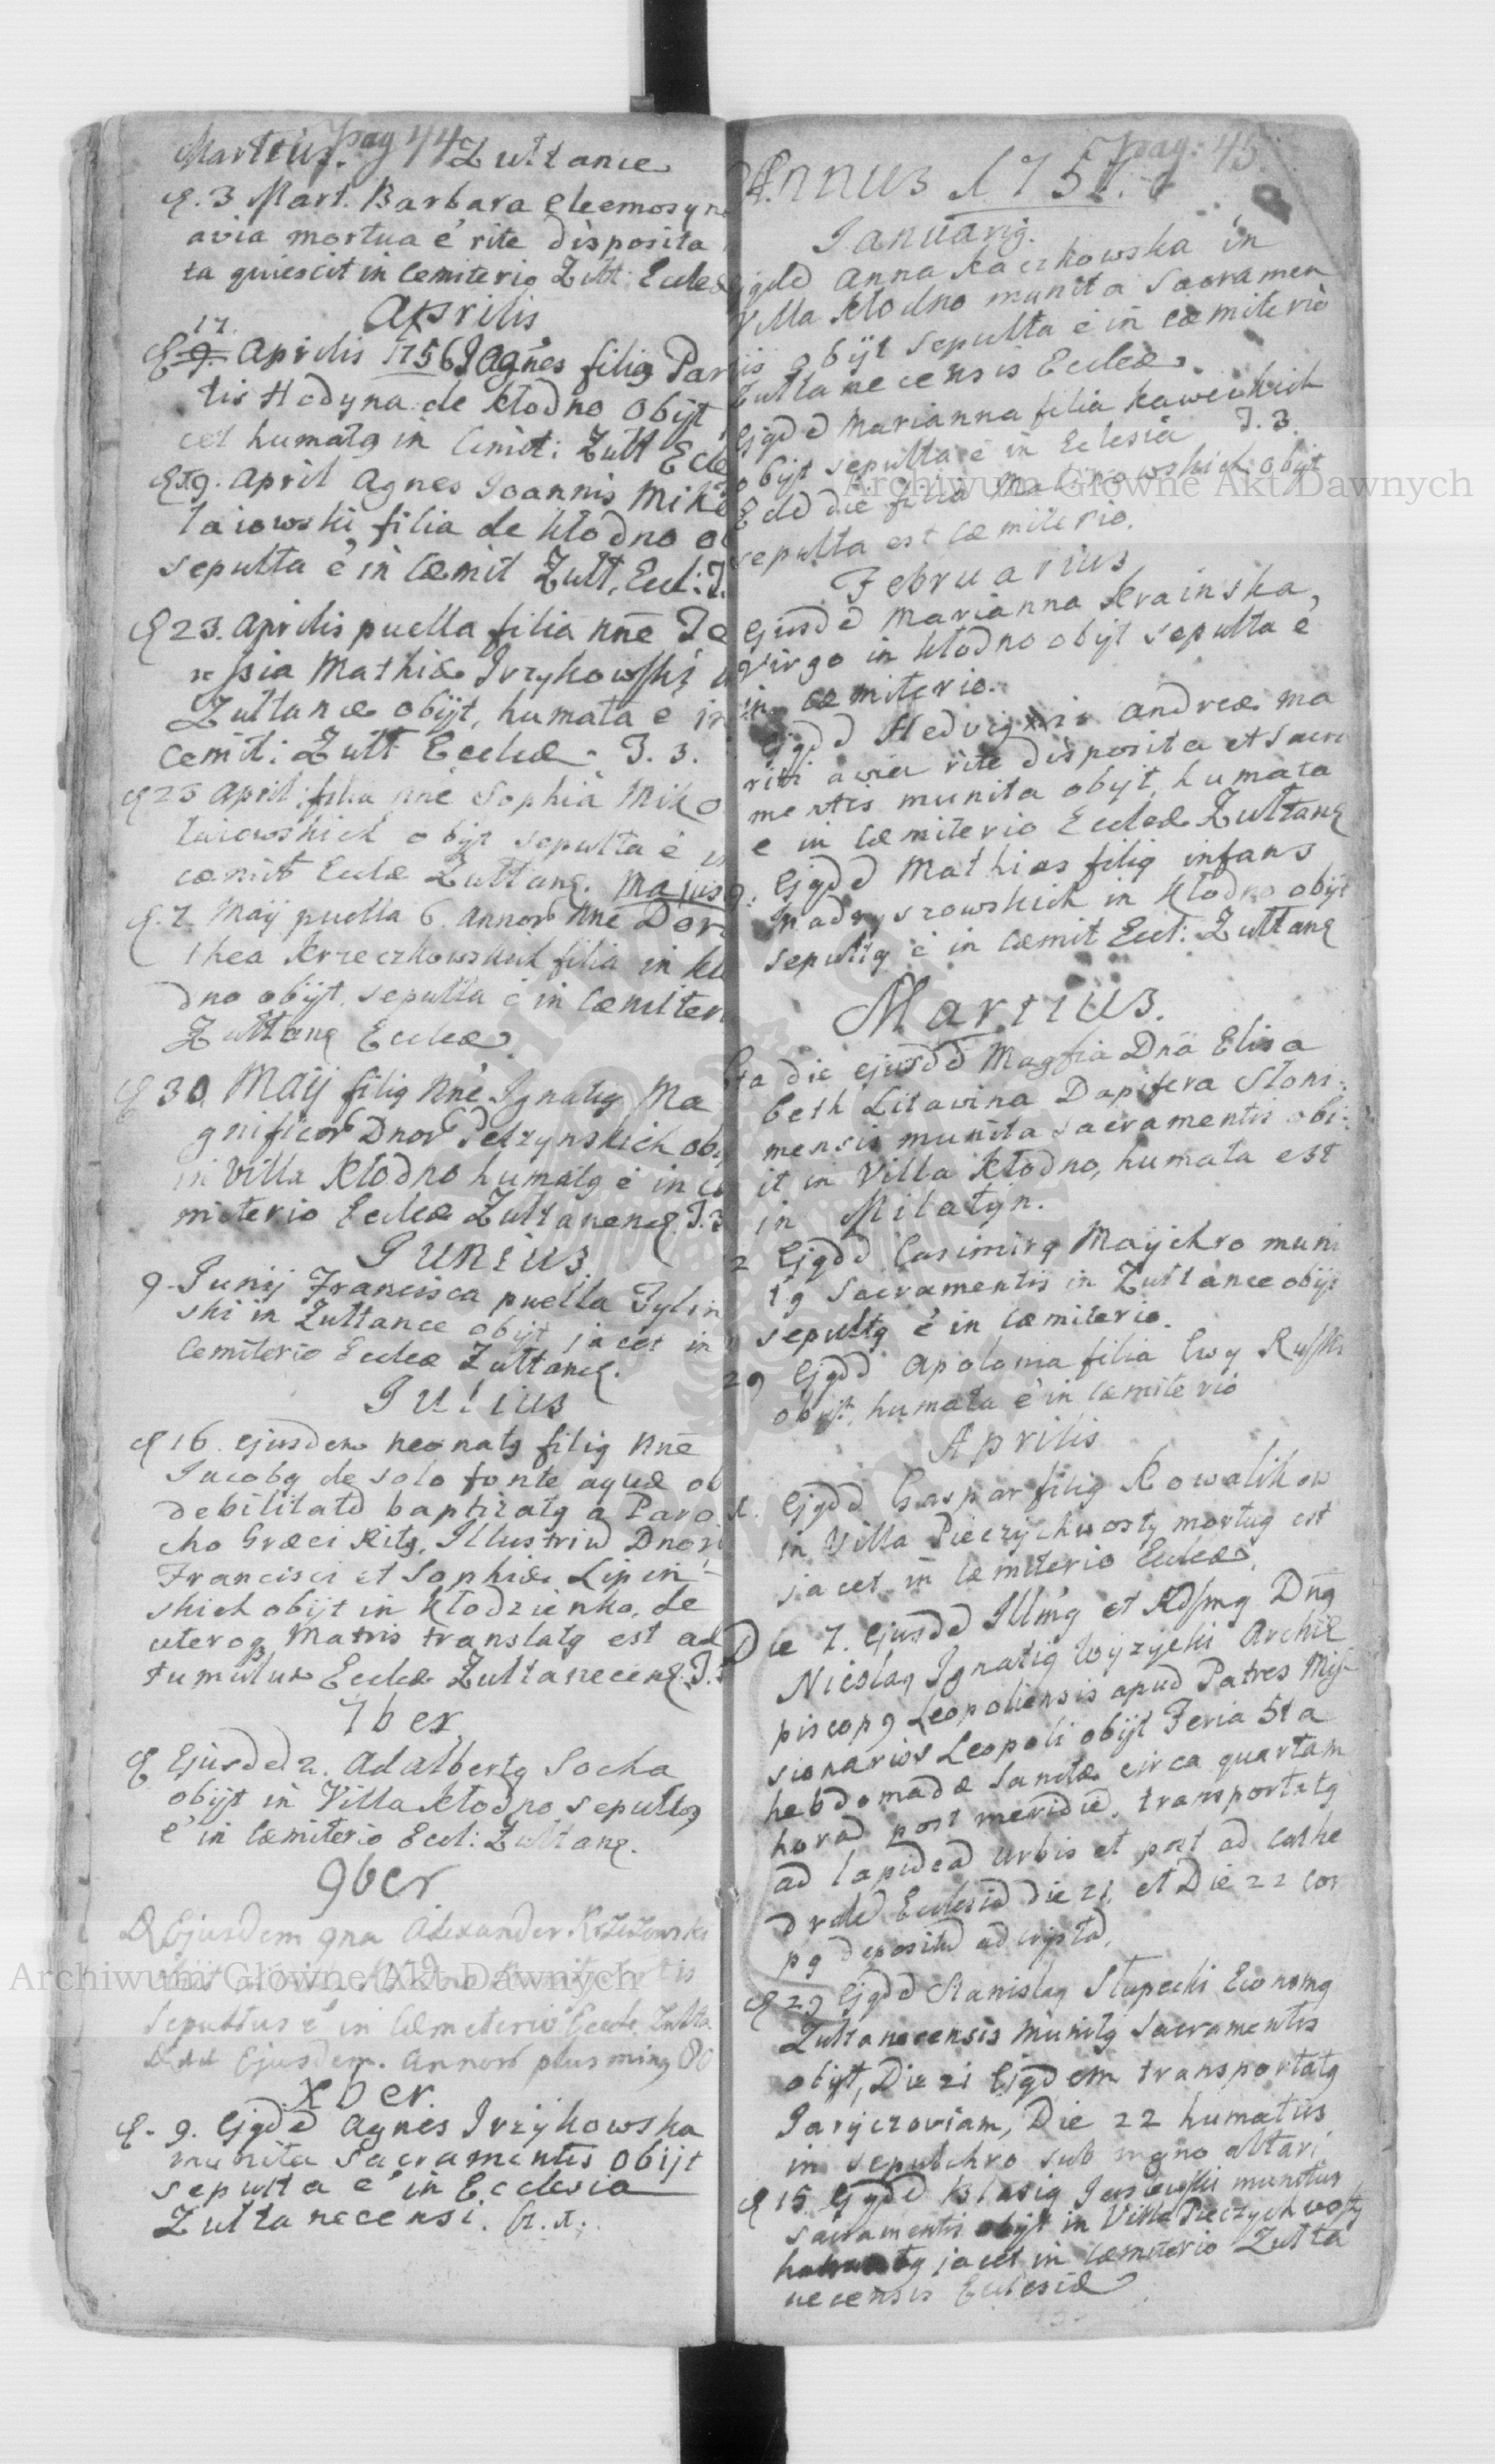 Martius. pag 44 Zułtance
3 Mart. Barbara eleemosyn
avia mortua ē rite disposita
ta quiescit in cemiterio Zult: Eccle
Aprilis
17.
9. Aprilis 1756 Agnes filia Par
tis Hodyna de Kłodno obijt
cet humatg in Cemit: Zult Ecle
19. April Agnes Joannis Miko
laiowski filia de kłodno ob
sepulta ē in Cœmit Zult. Eccl:
23. Aprilis puella filia nnē Te
ressia Mathiæ Irzykowski
Zultance obijt, humata ē in
cemit: Zult Eccleæ - T. 3.
25 April: filia nnē Sophia Miko
laiowskich obijt sepulta ē in
cœmit Eccleæ Zultanę. Majus
7. Maij puella 6. annor nnē Doro
thea Krzeczkowskich filia in kło
dno obijt. sepulta ē in Cœmiter
Zultanę Eccleæ
30 Maij filig nnē Ignatig Ma
gnificor Dnor Pełzynskich obij
in Villa Kłodno humatg ē in cæ
miterio Eccleæ Zultanenę. T. 3
Junius.
9. Junij Francisca puella Tylin
ski in Zultance obijt jacet in
Cemiterio Eccleæ Zultanę.
Julius
16. ejusdem neonatg filig nnē
Jacobg de solo fonte aquæ ob
debilitatē baptizatg a Paro
cho Græci Ritg, Illustriū Dnori
Francisci et Sophiæ Lipin
skich obijt in Kłodzienko, de
utero Matris translatg est ad
tumulum Eccleæ Zultanecenę. T.
7ber
Ejusdē 2. Adalbertg Socha
obijt in Villa Kłodno sepultg
ē in Cœmiterio Eccl: Zultanę.
9ber
Ejusdem 9na Alexander
Sepultus ē in Cæmeterio Eccle Zulta
Ejusdem. Annorū plus ming 80
Xber.
9. Ejgdē Agnes Irzykowska
munita Sacramentis obijt
sepulta ē in Ecclesia
Zultanecensi.
pag: 45.
Annus 1757.
Januarig.
Ejgdē Anna Kaczkowska in
Villa Kłodno munita Sacramen
tis obijt sepulta ē in cœmiterio
Zultanecensis Eccleæ.
Ejgdē Marianna filia Kaweckich
obijt sepulta ē in Eclesia T. 3.
Eodē die filia Malinowskich obijt
sepulta est Cœmiterio.
Februarius
Ejusdē Marianna Krainska,
Virgo in Kłodno obijt sepulta ē
in cœmiterio.
Ejgdē Hedvig Andreæ ma
riti avia rite disposita et Sacra
mentis munita obijt, humata
ē in Cœmiterio Eccleæ Zultanę
9. Ejgdē Mathias filig infans
Madryszowskich in Kłodno obijt
sepultg ē in Cœmit Eccl: Zultanę
Martius.
6ta die ejusdē Magfia Dnā Elisa
beth Litavina Dapifera Słoni:
mensis munita sacramentis obi:
it in Villa Kłodno, humata est
in Milatyn.
2 Ejgdē Casimirg Maychro muni
tg Sacramentis in Zultance obijt
sepultg ē in Cœmiterio.
29 Ejgdē Apolonia filia Ewy Ruski
obijt, humata ē in Cœmiterio
Aprilis
1. Ejgdē Gaspar filig Kowalikow
in Villa Pieczychwosty mortug est
jacet in Cœmiterio Eccleæ.
Die 7. Ejusdē Illmg et Rdsmg Dng
Nicolag Ignatig Wyżycki Archie
piscopg Leopoliensis apud Patres Mis
sionarios Leopoli obijt Feria 5ta
hebdomadæ Sanctæ circa quartam
horā post meridiē, transportatg
ad lapideā urbis et post ad cathe
dralē Ecclesiā die 21. et Die 22 cor
pg depositū ad cryptā.
29 Ejgdē Stanislag Słupecki Economg
Zultanecensis munitg Sacramentis
obijt, Die 21 Ejgdem transportatg
Jaryczoviam, Die 22 humatus
in sepulchro sub mgno altari
15 Ejgdē Blasig munitus
sacramentis obijt in Villa Pieczychwosty
jacet in Cœmiterio Zulta
necensis Eclesiæ
Archiwum Główne Akt Dawnych
Archiwum Główne Akt Dawnych